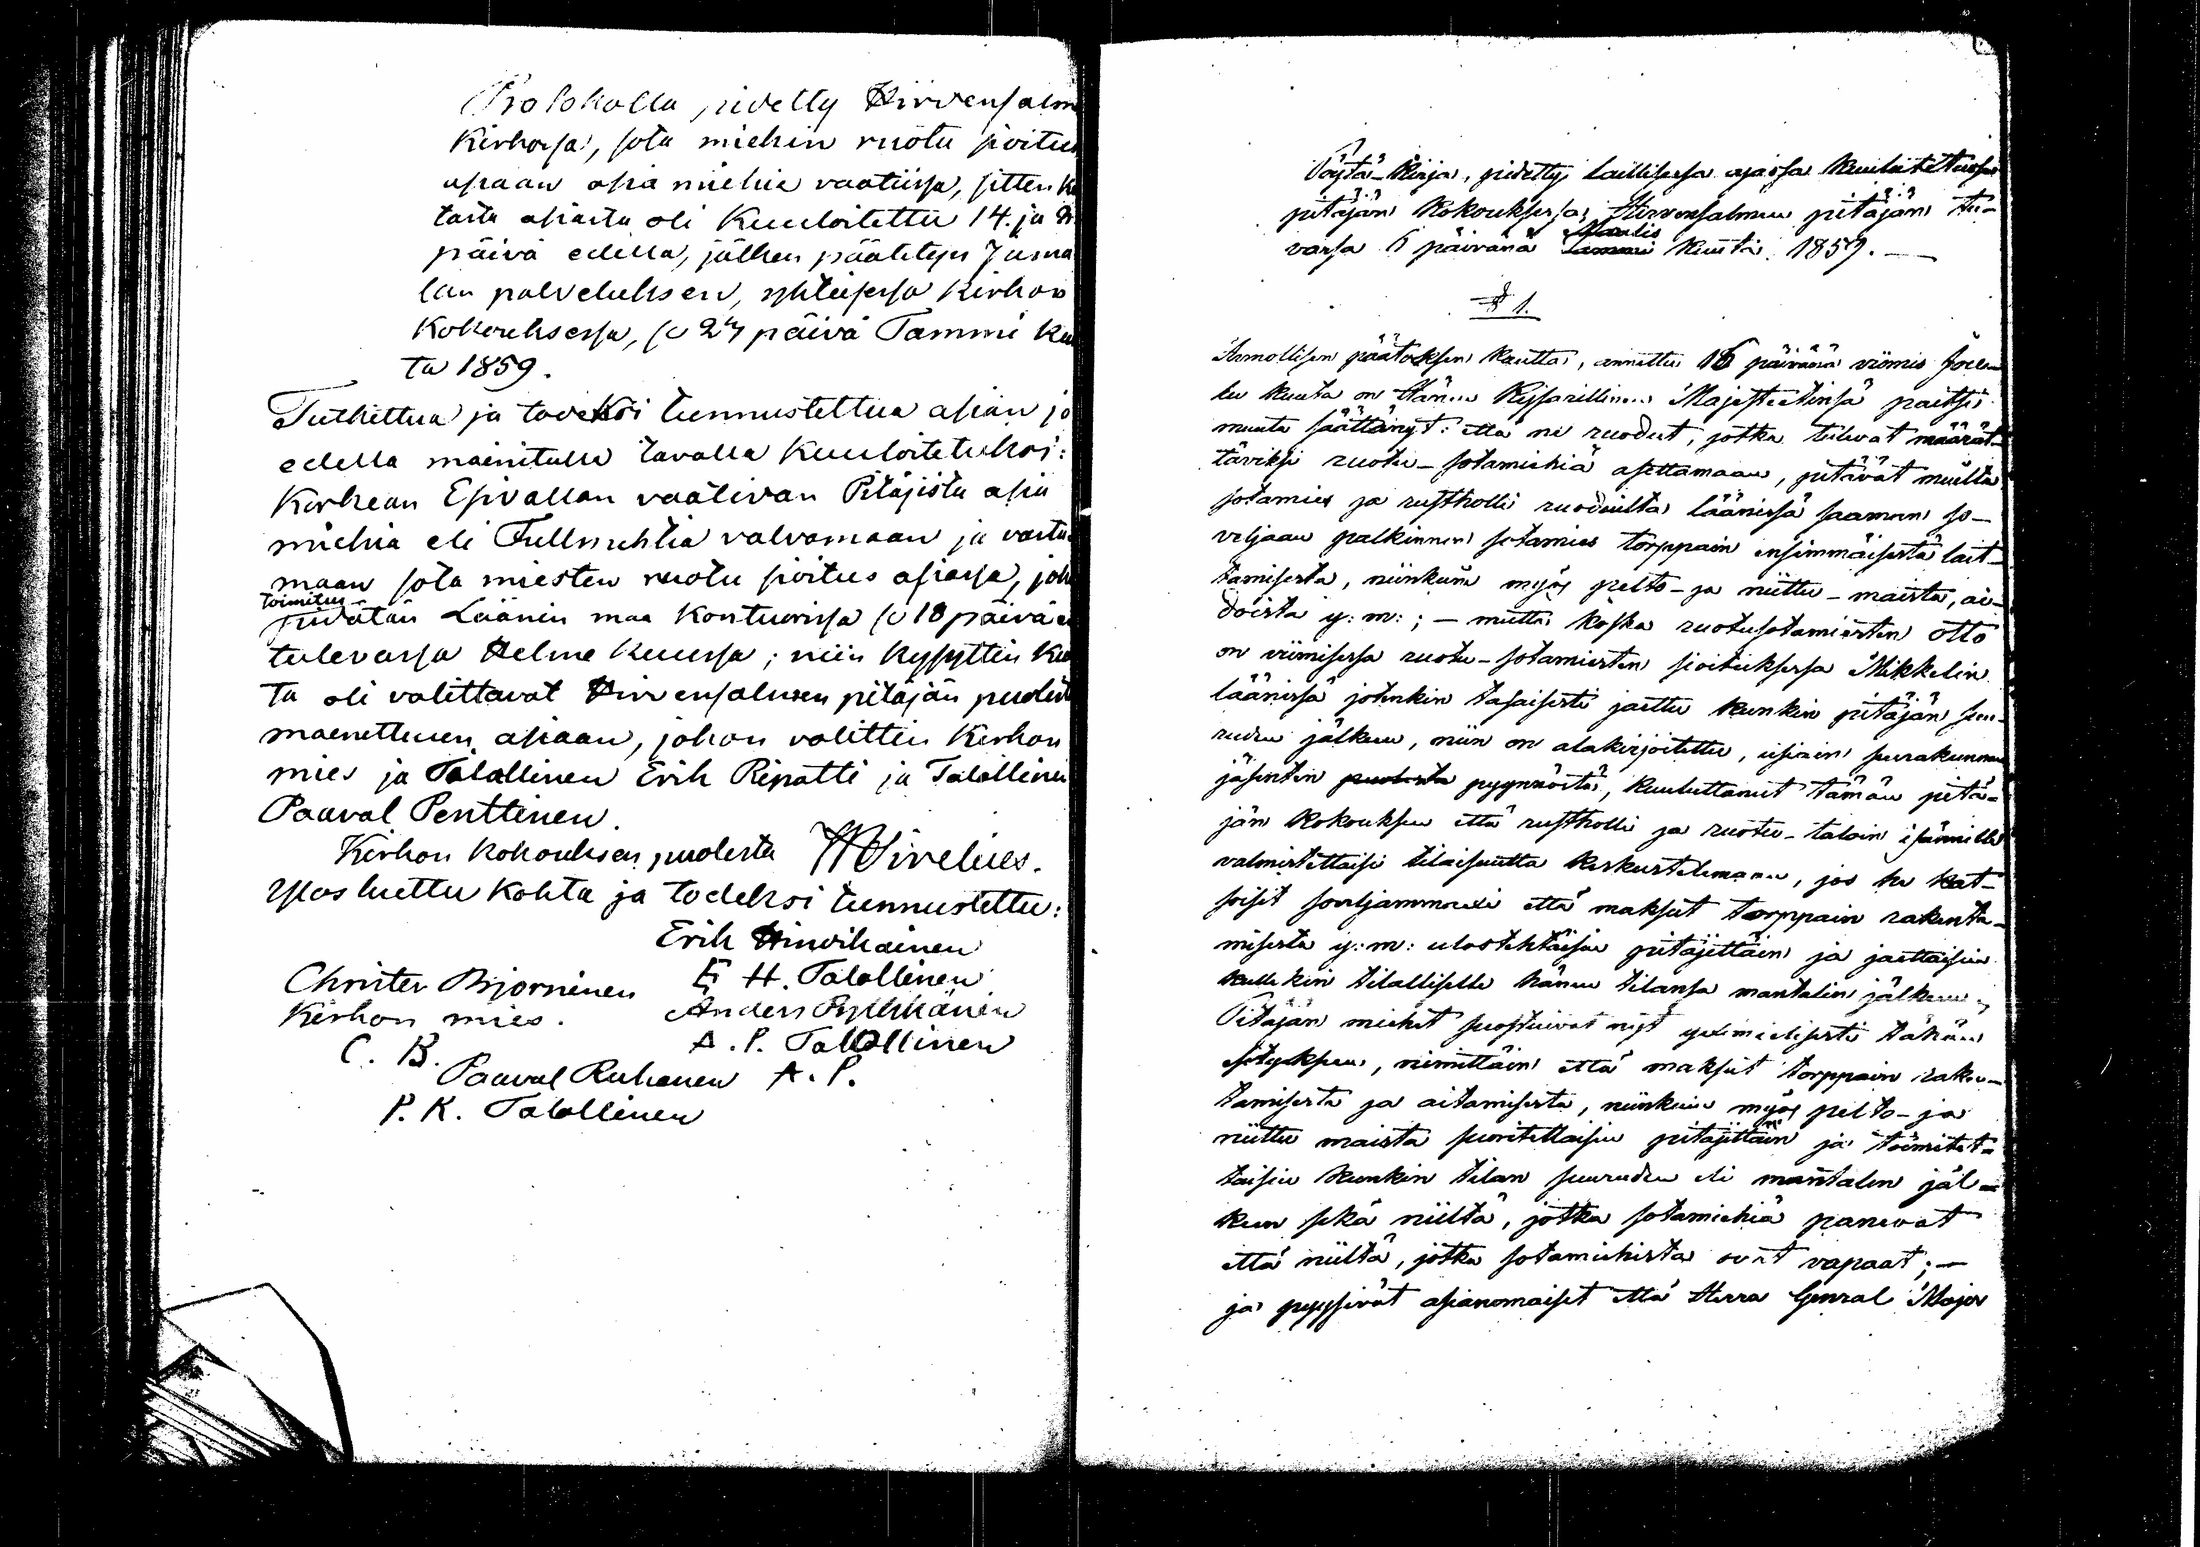 Protokolla pidetty Hirvensalm
Kirkosa, sota miehin ruotu sioitus
asiaan asia miehiä vaatiissa, sitten k
tästä asiasta oli Kuuloitettu 14. ja
päivä edellä, jälken päätetyn Juma
lan palveluksen, yhteisesä Kirkon
Kokouksessa, se 27 päivä Tammi ku
ta 1859.
Tutkittua ja todeksi tunnustettua asian jo
edellä mainitulla tavalla Kuuloitetuksi:
Korkean Esivallan vaativan Pitäjistä asia
miehiä eli Fullmehtiä valvomaan ja vasta
maan sota miesten ruotu sioitus asiassa, jok
toimitus
pidetän Läänin maa Konttuorissa se 18 päivä
tulevassa Helme Kuussa; niin kysyttiin Ku
ta oli valittavat Hirvensalmen pitäjän puolest
maenettuun asiaan, johon valittiin Kirkon
mies ja Talollinen Erik Ripatti ja Talollinen
Paaval Penttinen.
Kirkon Kokouksen puolesta W Sirelius.
Ylös luettu kohta ja todeksi tunnustettu:
Erik Hinvikainen
Christer Bjorninen E H. Talollinen
Kirkon mies. Anders Pylkkänen
C. B. A. P. Talollinen
Paaval Ruhanen A. P.
P. K. Talollinen
Pöytä-Kirja, pidetty laillisessa ajassa Kuuloitetussa
pitäjän Kokouksessa Hirvensalmen pitäjän tu-
Maalis
vassa 6 päivänä Tammi Kuuta 1859. —
§ 1.
Armollisen päätöksen kautta, annettu 16 päivänä viimis Joulu
lu kuuta on Hänen Keisarillinen Majesteetinsä paitsi
muuta säättänyt: että ne ruodut, jotka tulevat määrät-
täviksi ruotu-sotamiehiä asettamaan, pitävät muilta
sotamies ja rustholli ruoduilta läänissä saaman so-
veljaan palkinnon sotamies torppain ensimmäisestä lait-
tamisesta, niinkuin myös pelto- ja niittu-maista, ai-
doista y: m: ; — mutta koska ruotusotamiesten otto
on viimisessä ruotu-sotamiesten sioituksessa Mikkelin
läänissä johnkin tasaisesti jaettu kunkin pitäjän suu-
ruden jälkeen, niin on alakirjoitettu, usiain seurakunnan
jäsenten puolesta pyynnöstä, kuuluttanut tämän pitä-
jän Kokouksen että rustholli ja ruotu-taloin isännille
valmistettaisi tilaisuutta keskustelemaan, jos he kat-
soisit soveljammaxi että maksut torppain rakenta-
misesta y: m: ulostehtäisiin pitäjittäin ja jaettaisiin
kullekin tilalliselle hänen tilansa mantalin jälkeen;
Pitäjän miehet suostuivat nyt yximielisesti tähän
esitykseen, nimittäin että maksut torppain raken-
tamisesta ja aitamisesta, niinkuin myös pelto- ja
niittu maista suoritettaisiin pitäjittäin ja toimitet-
taisiin kunkin tilan suuruden eli mantalin jäl-
keen sekä niiltä, jotka sotamiehiä panevat
että niiltä, jotka sotamiehistä ovat vapaat; —
ja pyysivät asianomaiset että Herra General Major